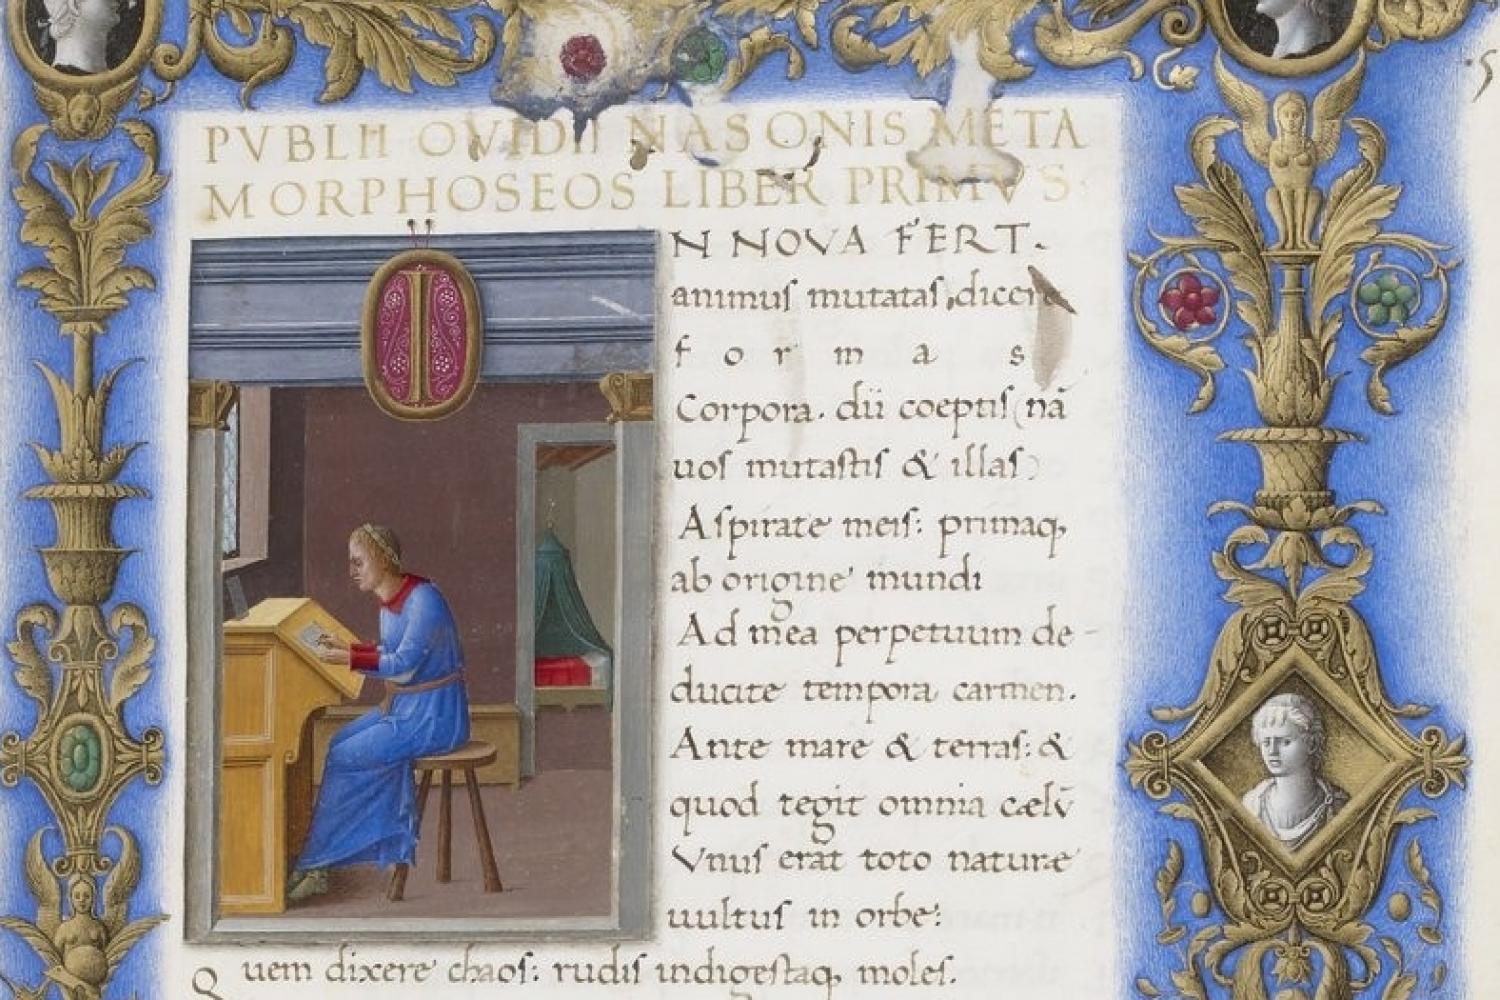 PVBLII OVIDII NASONIS META
MORPHOSEOS LIBER PRIMVS.
IN NOVA FERT.
animus mutatas dicere
formas
Corpora. dii coeptis (nā
uos mutastis & illas)
Aspirate meis: primaq,
ab origine mundi
Ad mea perpetuum de-
ducite tempora carmen.
Ante mare & terras: &
quod tegit omnia cælū
Vnus erat toto naturæ
uultus in orbe:
Quem dixere chaos: rudis indigestaq, moles.
·5